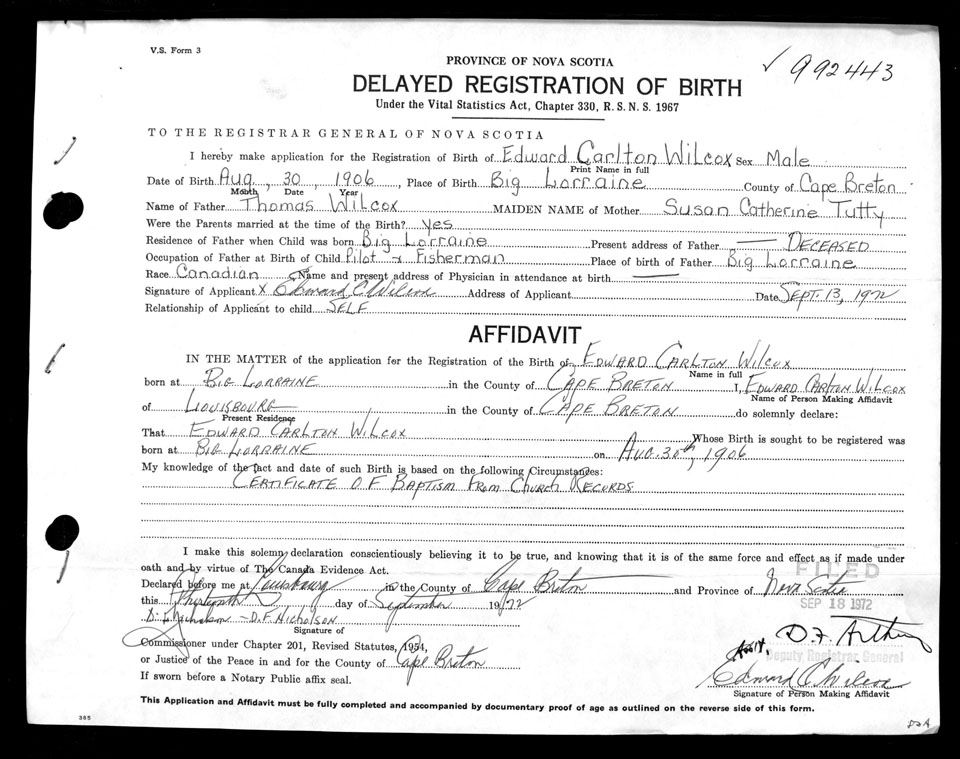 V.S. Form 3
992443
PROVINCE OF NOVA SCOTIA
DELAYED REGISTRATION OF BIRTH
Under the Vital Statistics Act, Chapter 330, R. S. N. S. 1967
TO THE REGISTRAR GENERAL OF NOVA SCOTIA
I hereby make application for the Registration of Birth of Edward Carlton Wilcox Sex Male
Print Name in full
Date of Birth Aug, 30, 1906, Place of Birth Big Lorraine County of Cape Breton
Month Date Year
Name of Father Thomas Wilcox MAIDEN NAME of Mother Susan Catherine Tutty
Were the Parents married at the time of the Birth? yes
Residence of Father when Child was born Big Lorraine Present address of Father — DECEASED
Occupation of Father at Birth of Child Pilot & Fisherman Place of birth of Father Big Lorraine
Race Canadian Name and present address of Physician in attendance at birth —
Signature of Applicant x Edward C Wilcox Address of Applicant Date SEPT. 13, 1972
Relationship of Applicant to child SELF
AFFIDAVIT
IN THE MATTER of the application for the Registration of the Birth of EDWARD CARLTON WILCOX
Name in full
born at BIG LORRAINE in the County of CAPE BRETON I, EDWARD CARLTON WILCOX
Name of Person Making Affidavit
of LOUISBOURG in the County of CAPE BRETON do solemnly declare:
Present Residence
That EDWARD CARLTON WILCOX Whose Birth is sought to be registered was
born at BIG LORRAINE on AUG. 30th, 1906
My knowledge of the fact and date of such Birth is based on the following Circumstances:
CERTIFICATE OF BAPTISM FROM CHURCH RECORDS
I make this solemn declaration conscientiously believing it to be true, and knowing that it is of the same force and effect as if made under
oath and by virtue of The Canada Evidence Act.
FILED
Declared before me at Louisbourg in the County of Cape Breton and Province of Nova Scotia
this Thirteenth day of September 1972
SEP 18 1972
D. F. Nicholson - D. F. NICHOLSON
Signature of
Commissioner under Chapter 201, Revised Statutes, 1954,
D. F. Arthey
Deputy Registrar General
or Justice of the Peace in and for the County of Cape Breton
If sworn before a Notary Public affix seal.
Edward C Wilcox
Signature of Person Making Affidavit
This Application and Affidavit must be fully completed and accompanied by documentary proof of age as outlined on the reverse side of this form.
385